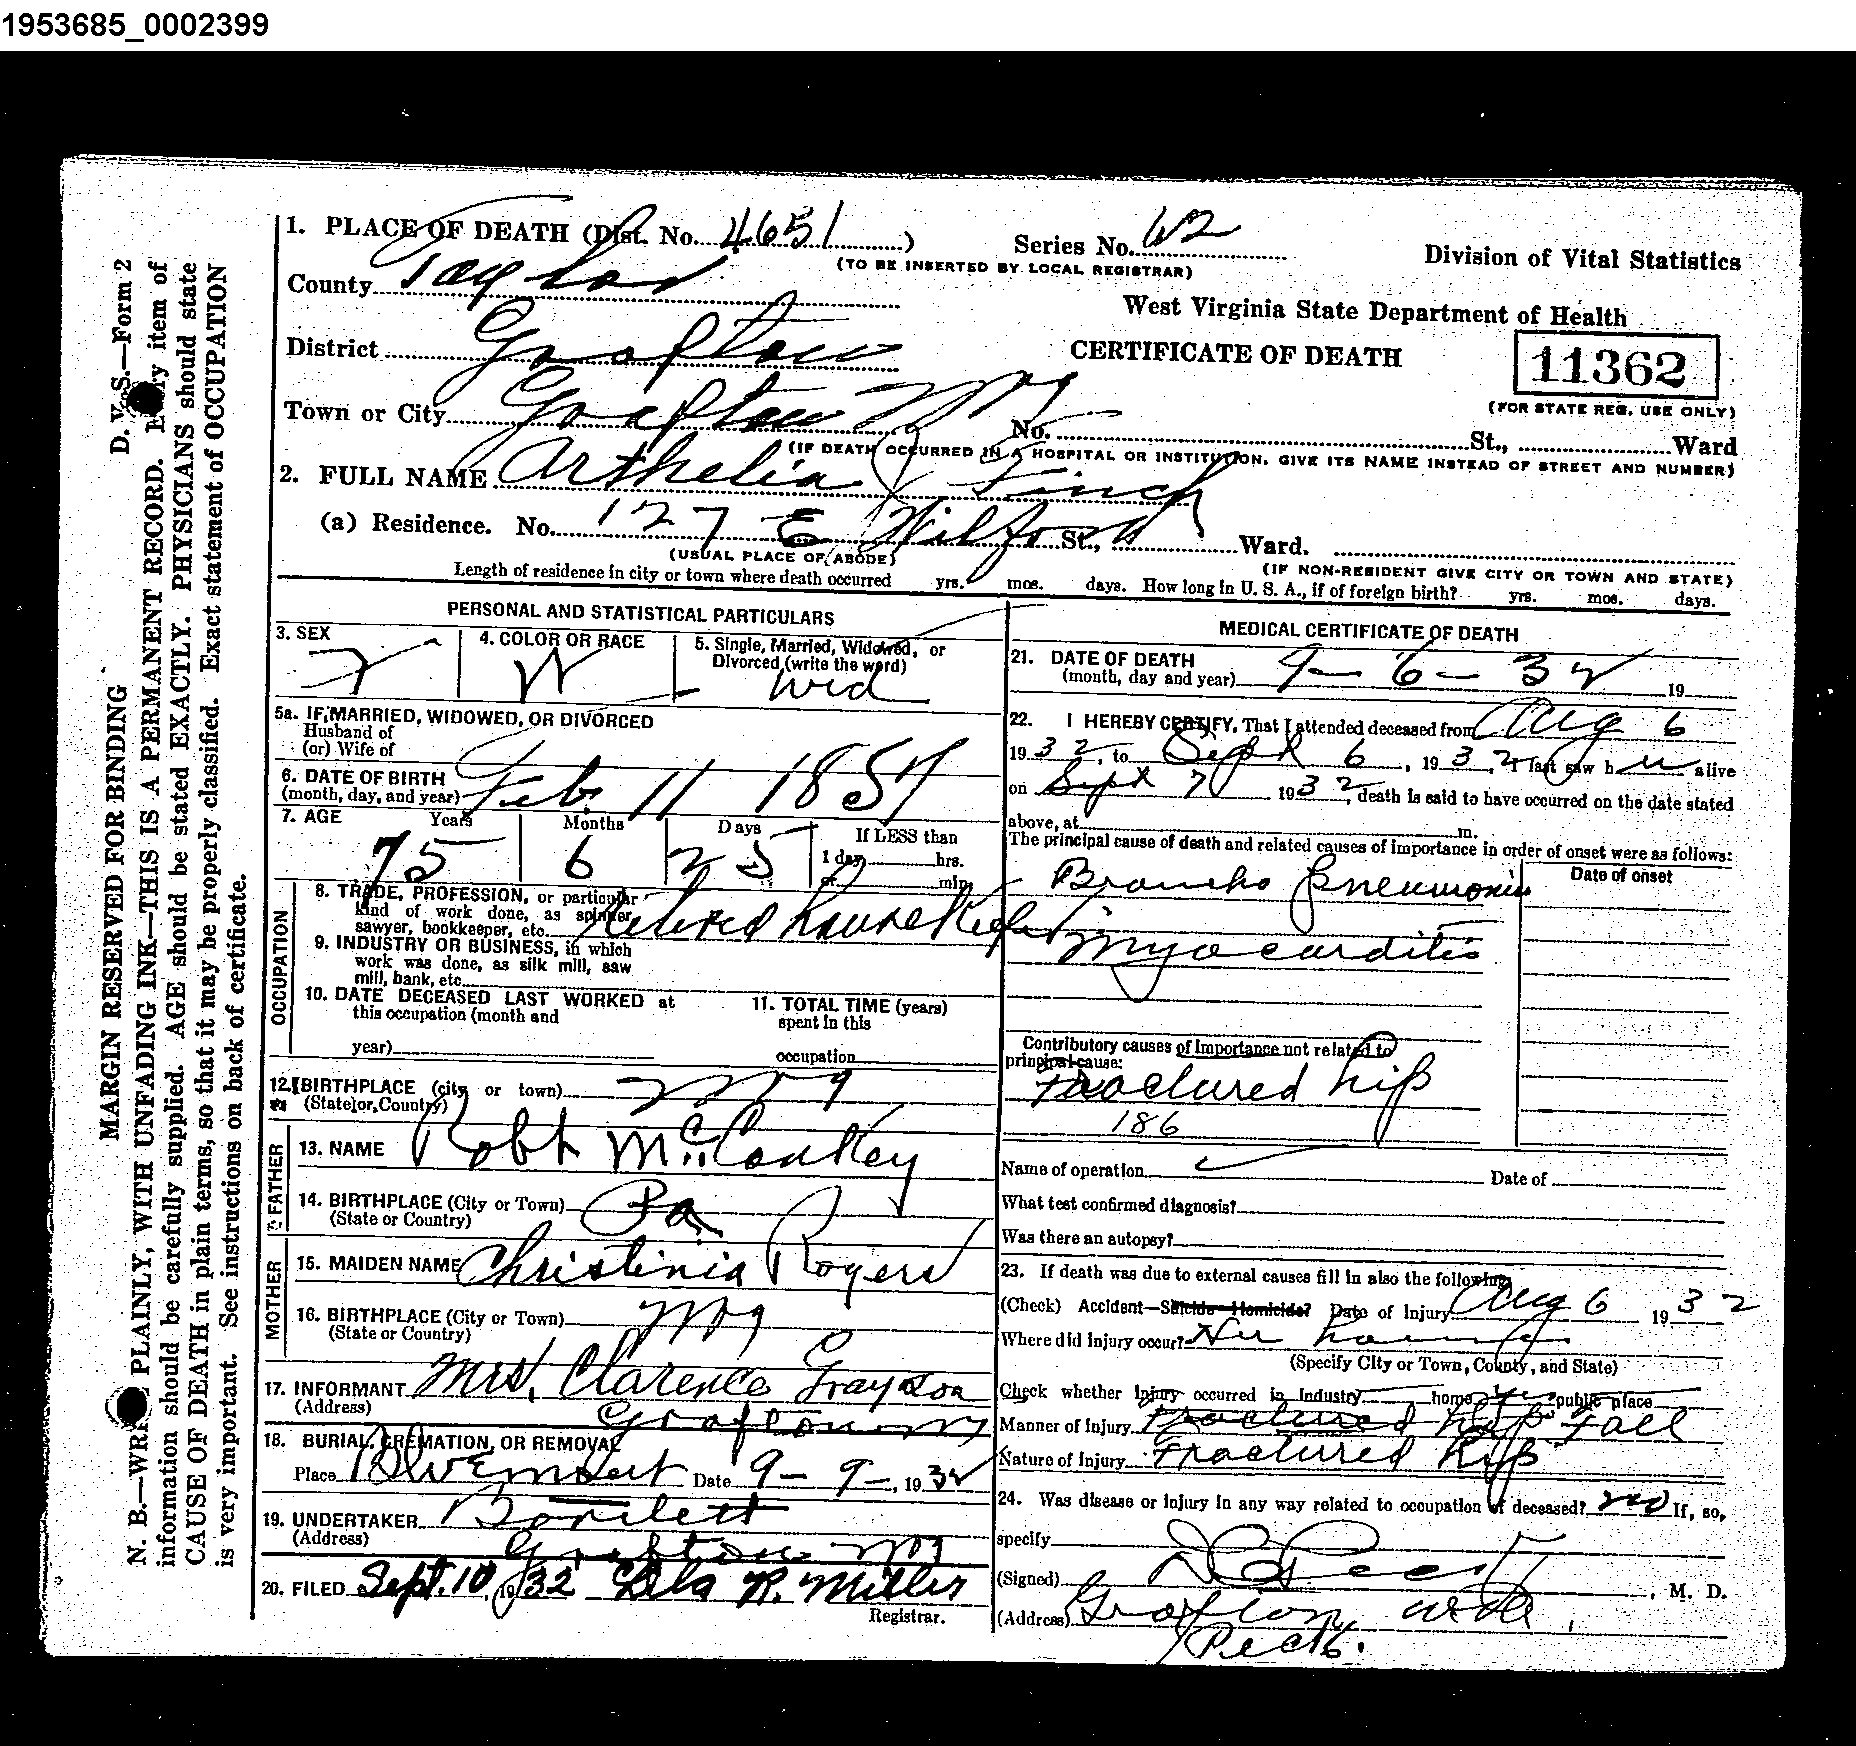 1953685_0002399
1. PLACE OF DEATH (Dist. No. 4651)
Series No. 62
(TO BE INSERTED BY LOCAL REGISTRAR)
Division of Vital Statistics
County Taylor
West Virginia State Department of Health
District Grafton
CERTIFICATE OF DEATH
11362
(FOR STATE REG. USE ONLY)
Town or City Grafton No. St., Ward
(IF DEATH OCCURRED IN A HOSPITAL OR INSTITUTION, GIVE ITS NAME INSTEAD OF STREET AND NUMBER)
2. FULL NAME Arthelia Finch
(a) Residence. No. 127 E Wilford St., Ward.
(USUAL PLACE OF ABODE) (IF NON-RESIDENT GIVE CITY OR TOWN AND STATE)
Length of residence in city or town where death occurred yrs. mos. days. How long in U. S. A., if of foreign birth? yrs. mos. days.
PERSONAL AND STATISTICAL PARTICULARS
3. SEX F
4. COLOR OR RACE W
5. Single, Married, Widowed, or Divorced (write the word) Wid
5a. IF MARRIED, WIDOWED, OR DIVORCED
Husband of
(or) Wife of
6. DATE OF BIRTH
(month, day, and year) Feb 11 1857
7. AGE Years Months Days If LESS than
75 6 25 1 day hrs.
or min.
OCCUPATION
8. TRADE, PROFESSION, or particular
kind of work done, as spinner,
sawyer, bookkeeper, etc. Retired housekeeper
9. INDUSTRY OR BUSINESS, in which
work was done, as silk mill, saw
mill, bank, etc.
10. DATE DECEASED LAST WORKED at
this occupation (month and
year)
11. TOTAL TIME (years)
spent in this
occupation
12. BIRTHPLACE (city or town)
(State or County)
FATHER
13. NAME Robt McConkey
14. BIRTHPLACE (City or Town) Pa
(State or Country)
MOTHER
15. MAIDEN NAME Christinia Rogers
16. BIRTHPLACE (City or Town)
(State or Country)
17. INFORMANT Mrs. Clarence Grayson
(Address) Grafton
18. BURIAL, CREMATION, OR REMOVAL
Place Bluemont Date 9-9-, 1932
19. UNDERTAKER Bartlett
(Address) Grafton
20. FILED Sept. 10, 1932 R. Miller
Registrar.
MEDICAL CERTIFICATE OF DEATH
21. DATE OF DEATH
(month, day and year) 9-6-32 19
22. I HEREBY CERTIFY, That I attended deceased from Aug 6
1932, to Sept 6, 1932, I last saw h alive
on Sept 7 1932, death is said to have occurred on the date stated
above, at m.
The principal cause of death and related causes of importance in order of onset were as follows:
Date of onset
Broncho Pneumonia
Myocarditis
Contributory causes of importance not related to
principal cause:
Fractured hip
186
Name of operation Date of
What test confirmed diagnosis?
Was there an autopsy?
23. If death was due to external causes fill in also the following:
(Check) Accident—Suicide—Homicide? Date of Injury Aug 6 1932
Where did injury occur?
(Specify City or Town, County, and State)
Check whether injury occurred in industry home yes public place
Manner of Injury Fractured hip Fall
Nature of Injury Fractured hip
24. Was disease or injury in any way related to occupation of deceased? no If, so,
specify
(Signed) Peck, M. D.
(Address) Grafton,
Peck.
MARGIN RESERVED FOR BINDING
D. V. S.—Form 2
N. B.—WRITE PLAINLY, WITH UNFADING INK—THIS IS A PERMANENT RECORD. Every item of
information should be carefully supplied. AGE should be stated EXACTLY. PHYSICIANS should state
CAUSE OF DEATH in plain terms, so that it may be properly classified. Exact statement of OCCUPATION
is very important. See instructions on back of certificate.